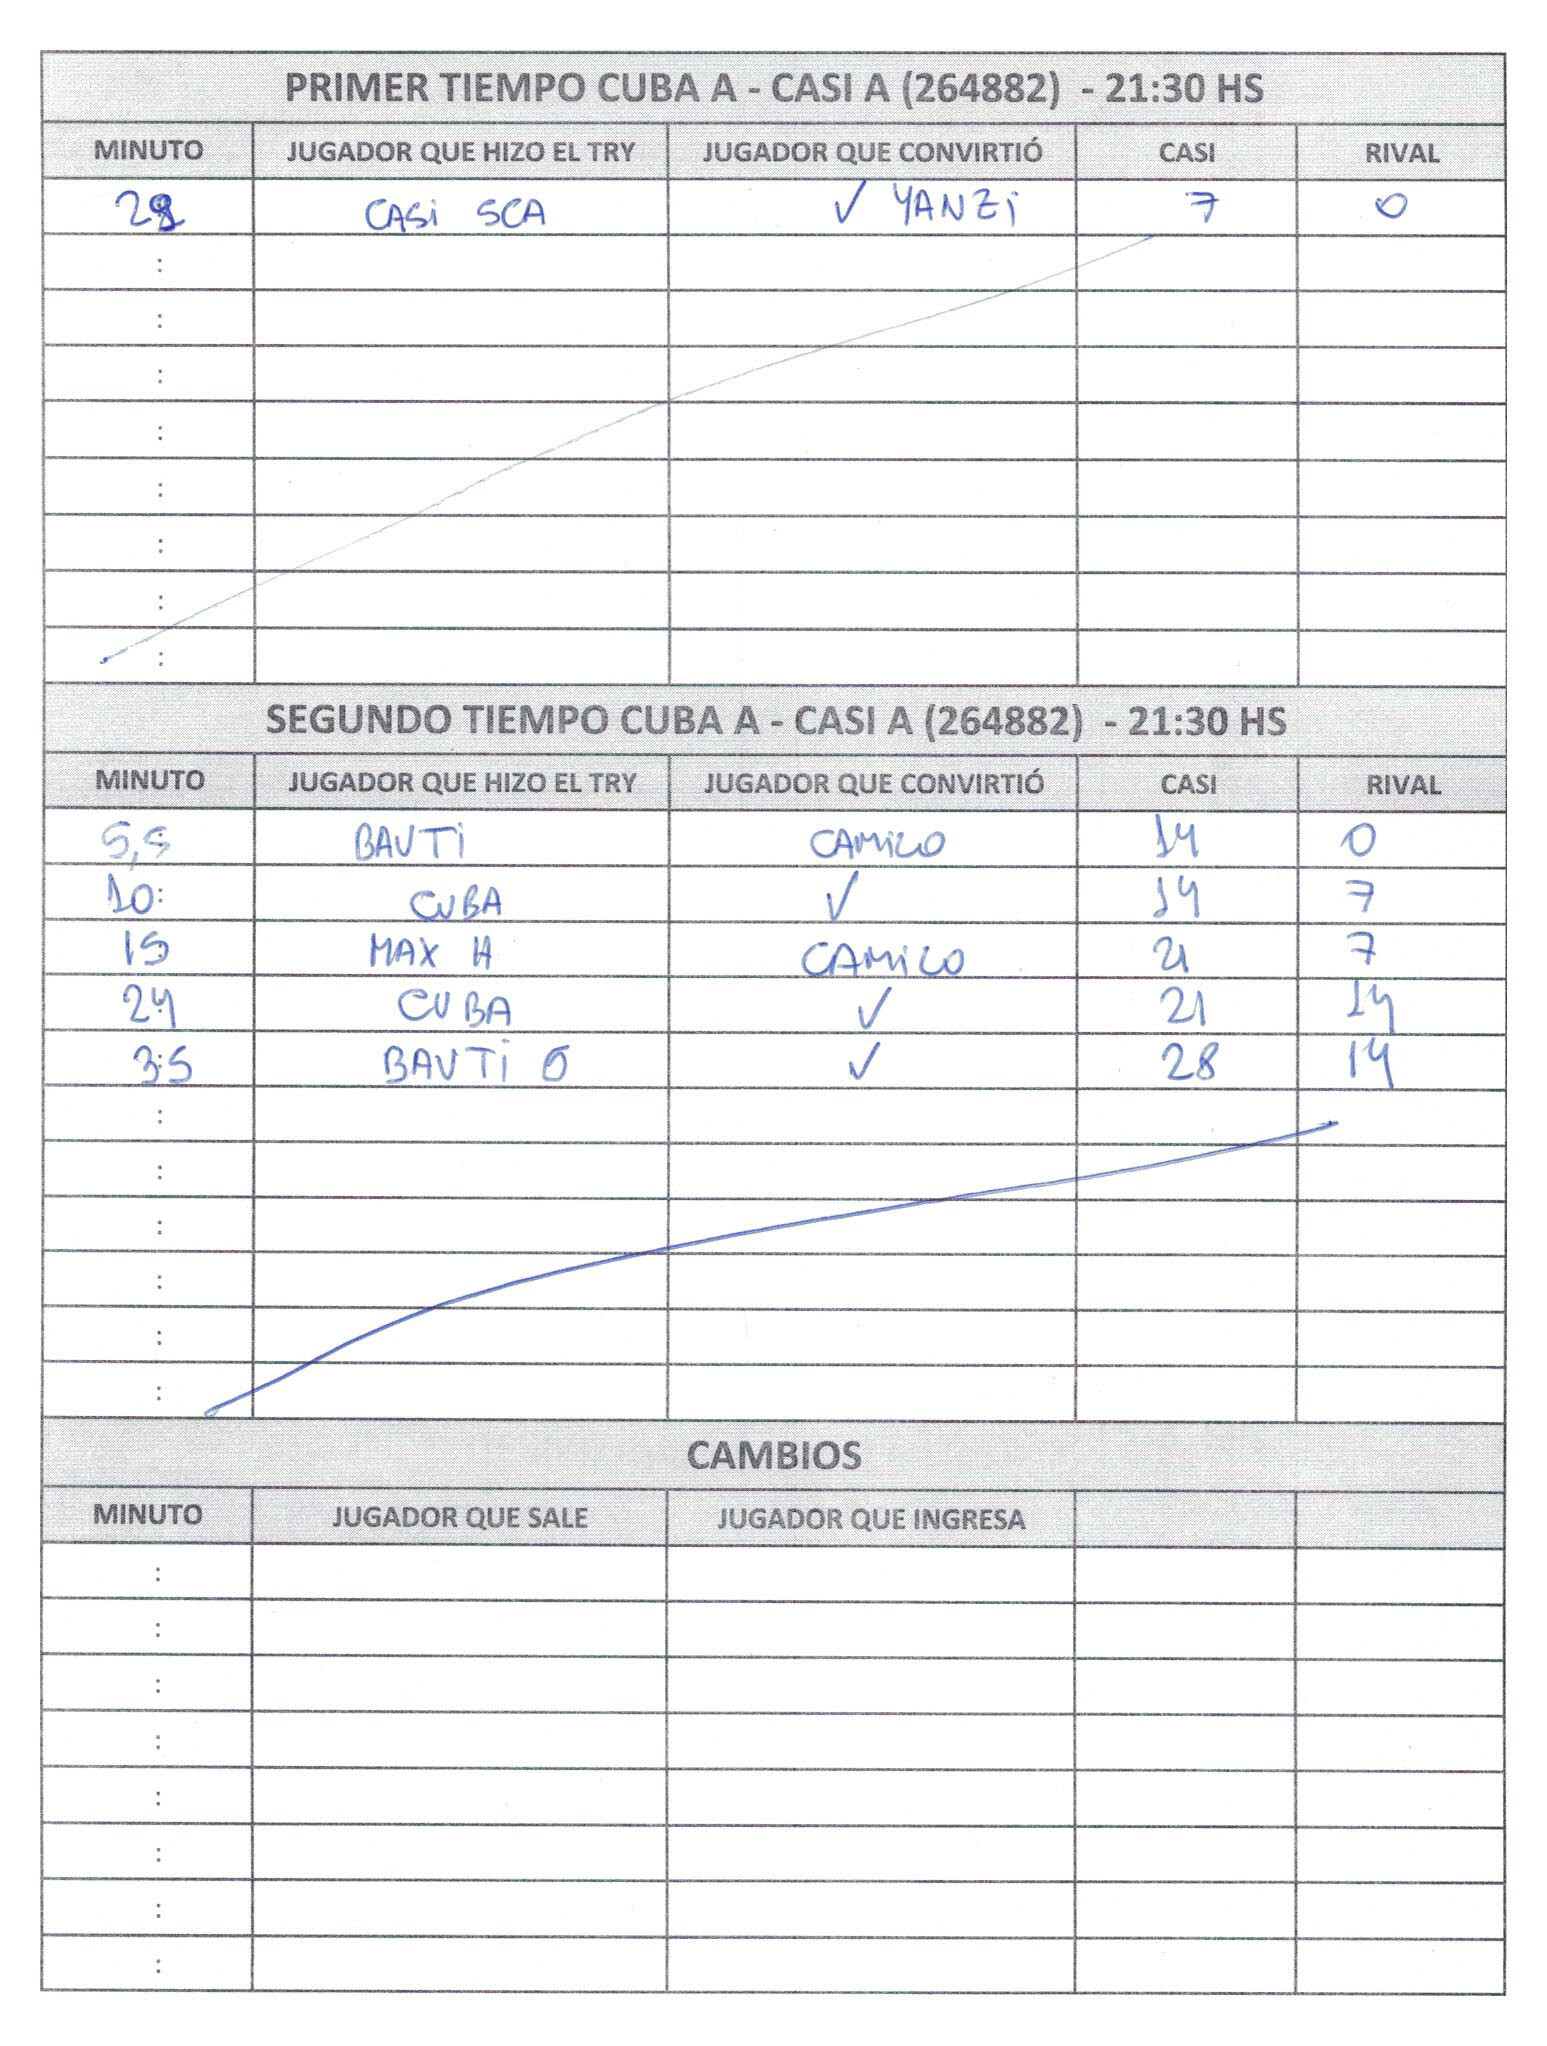 PRIMER TIEMPO CUBA A - CASI A (264882) - 21:30 HS
MINUTO JUGADOR QUE HIZO EL TRY JUGADOR QUE CONVIRTIÓ CASI RIVAL
28 CASI SCA ✓ YANZI 7 0
:
:
:
:
:
:
:
:
SEGUNDO TIEMPO CUBA A - CASI A (264882) - 21:30 HS
MINUTO JUGADOR QUE HIZO EL TRY JUGADOR QUE CONVIRTIÓ CASI RIVAL
5,5 BAUTI CAMILO 14 0
10: CUBA ✓ 14 7
15 MAX H CAMILO 21 7
24 CUBA ✓ 21 14
3:5 BAUTI O ✓ 28 14
:
:
:
:
:
:
CAMBIOS
MINUTO JUGADOR QUE SALE JUGADOR QUE INGRESA
:
:
:
:
:
:
:
: